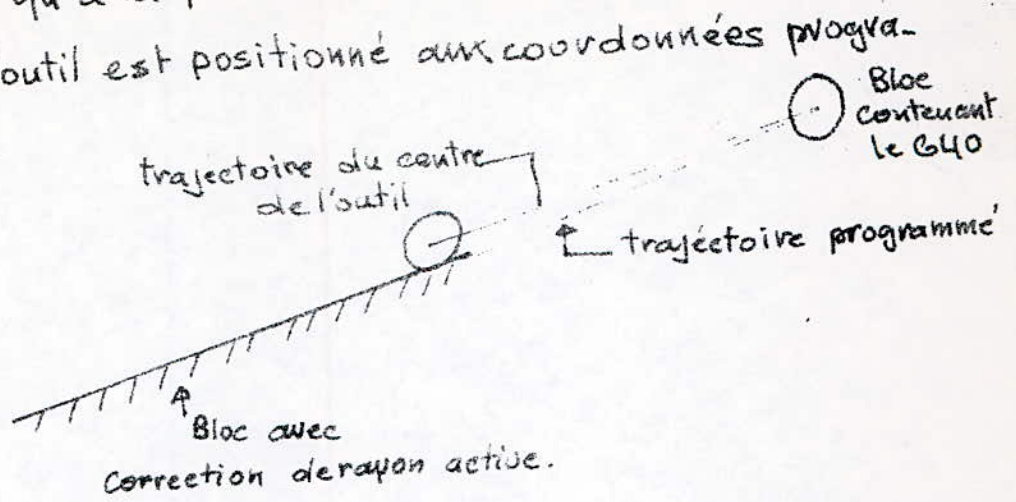 outil est positionné aux coordonnées progra-
Bloc
contenant
le G40
trajectoire du centre
de l'outil
trajéctoire programmé
Bloc avec
correction de rayon active.